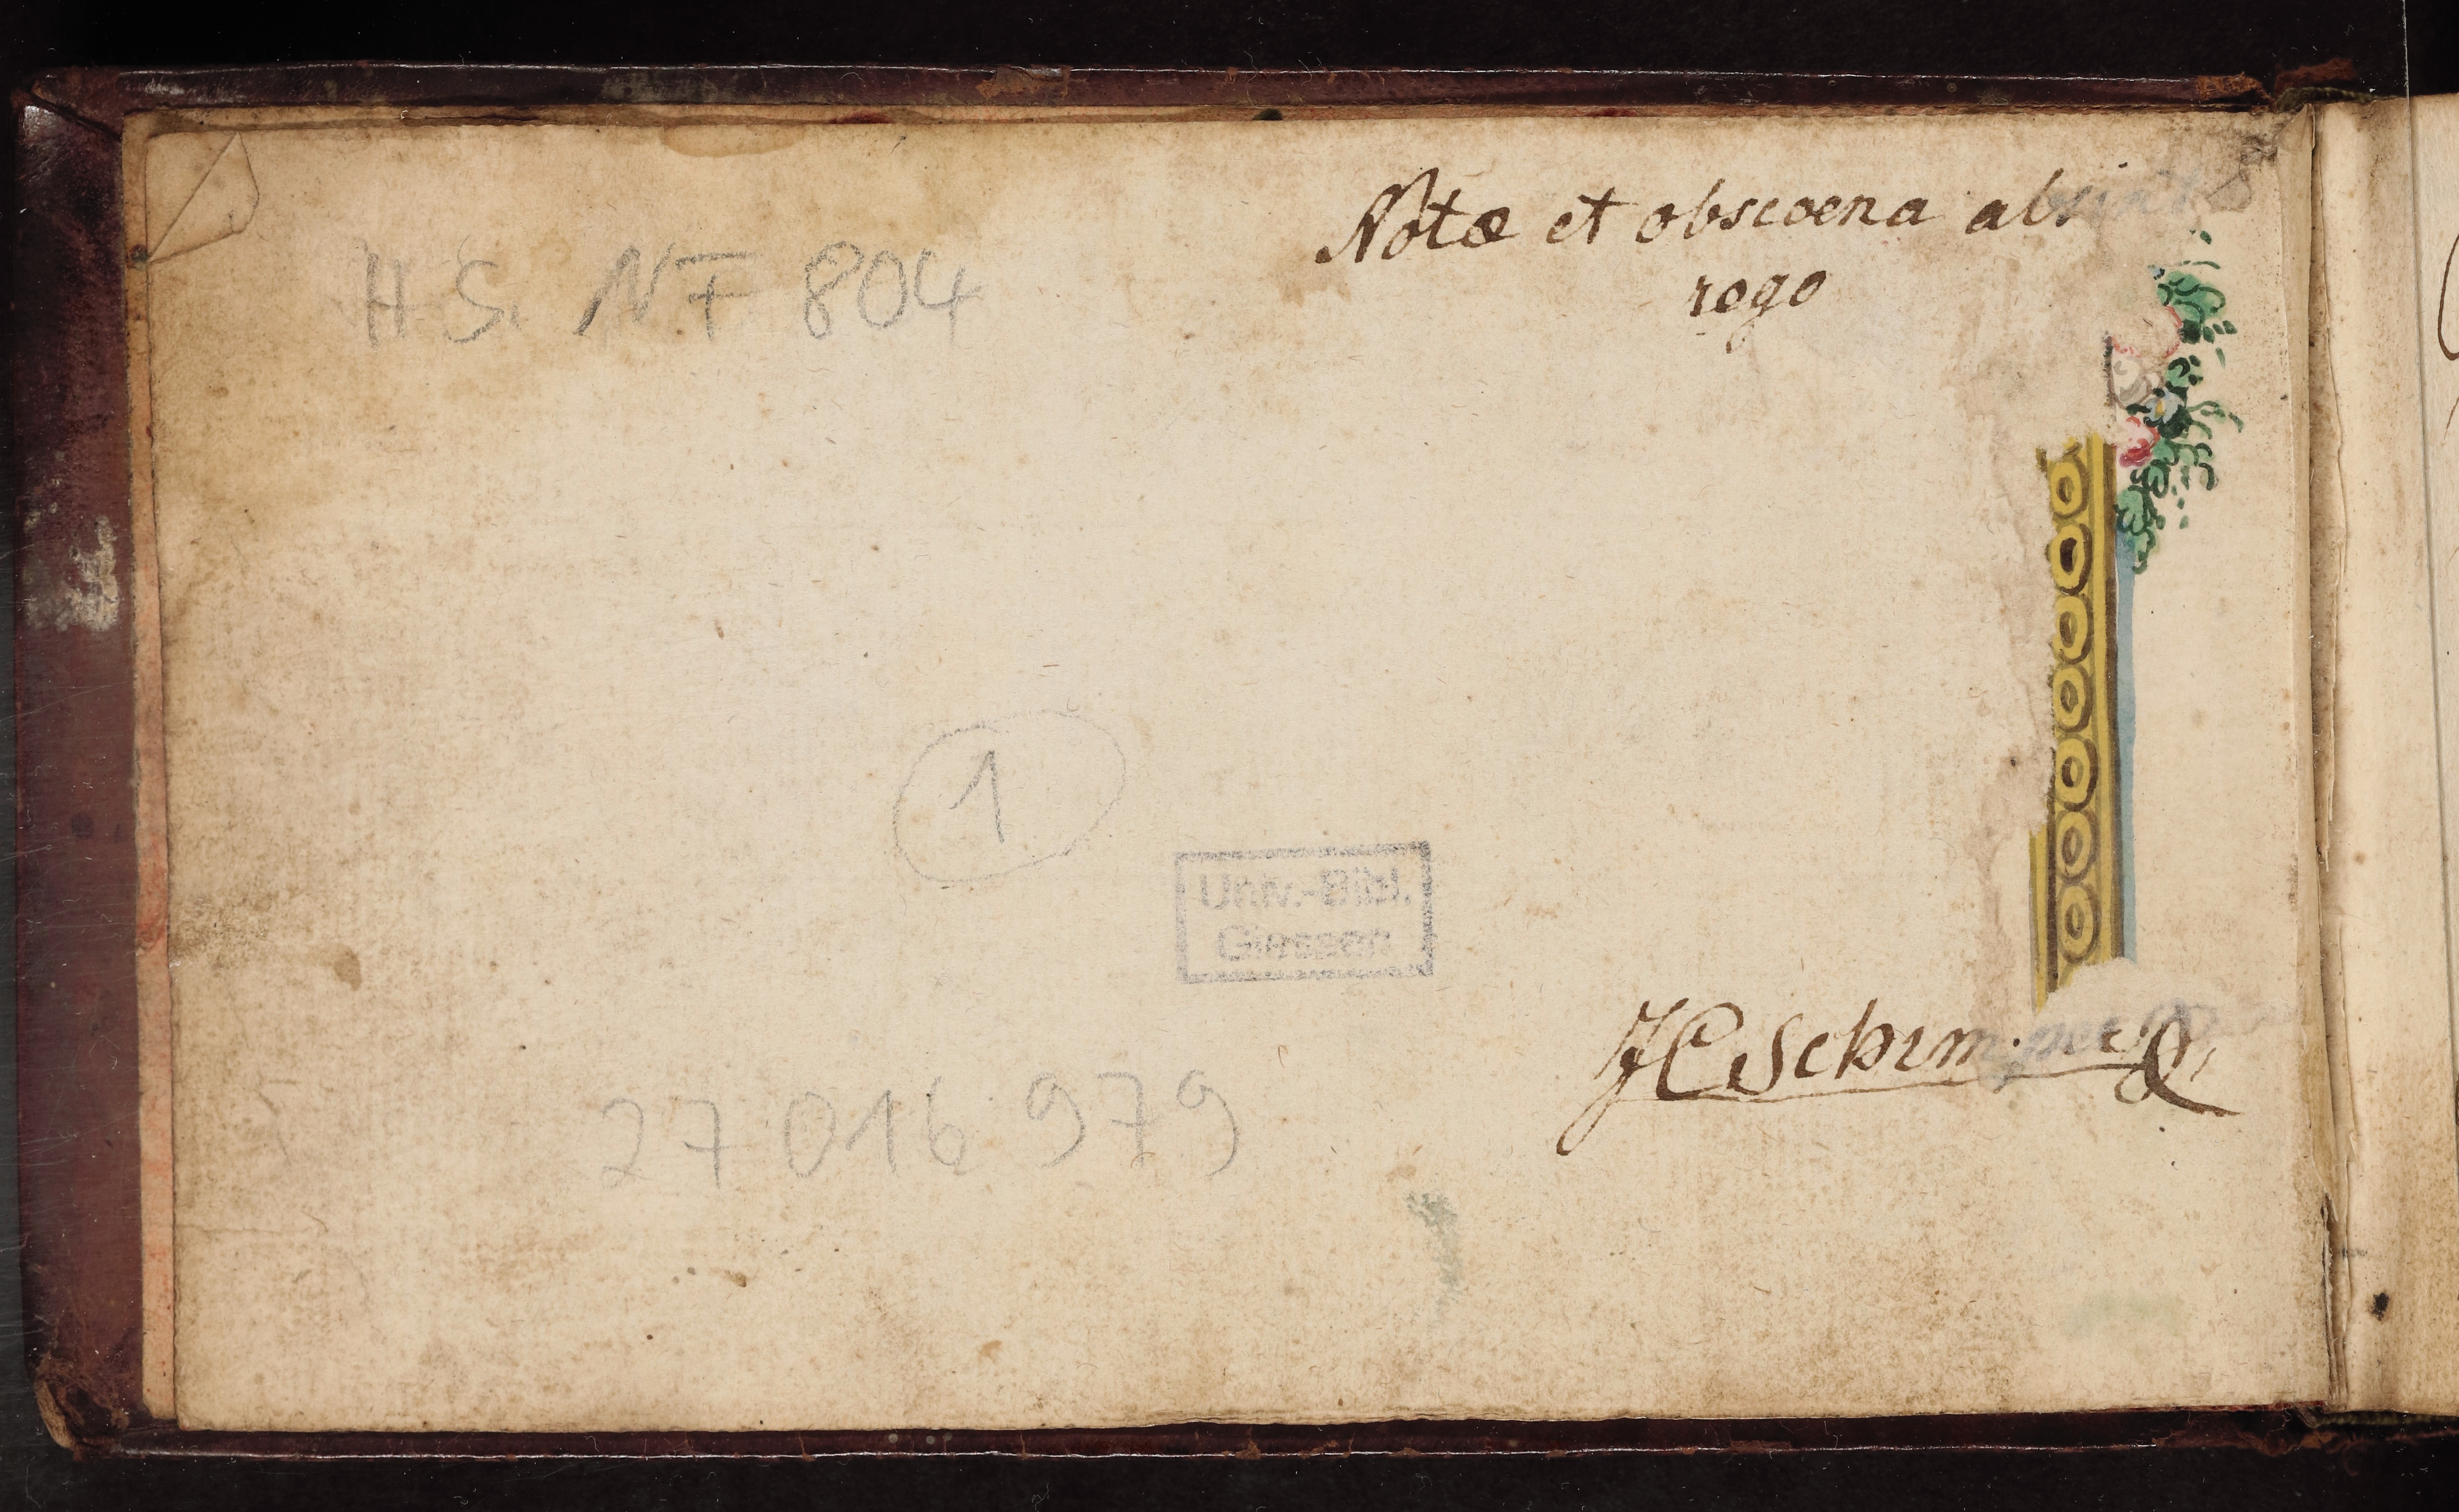 Notæ et obscoena absint
rogo
HS. NF 804
1
Univ.-Bibl.
Giessen
27 016 979